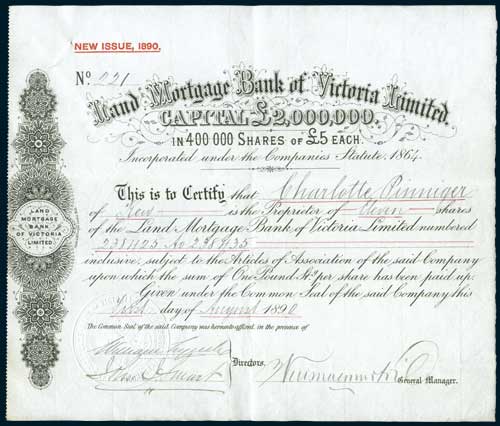 NEW ISSUE, 1890.
No 221
Land Mortgage Bank of Victoria Limited.
CAPITAL £2,000,000.
IN 400 000 SHARES OF £5 EACH.
Incorporated under the Companies Statute, 1864.
This is to Certify that Charlotte Pinniger
of Kew is the Proprietor of Eleven shares
of the Land Mortgage Bank of Victoria Limited numbered
238425 to 238435
inclusive, subject to the Articles of Association of the said Company
upon which the sum of One Pound Stg per share has been paid up.
Given under the Common Seal of the said Company this
First day of August 1890
The Common Seal of the said Company was hereunto affixed, in the presence of
Directors.
General Manager.
LAND
MORTGAGE
BANK
OF VICTORIA
LIMITED.